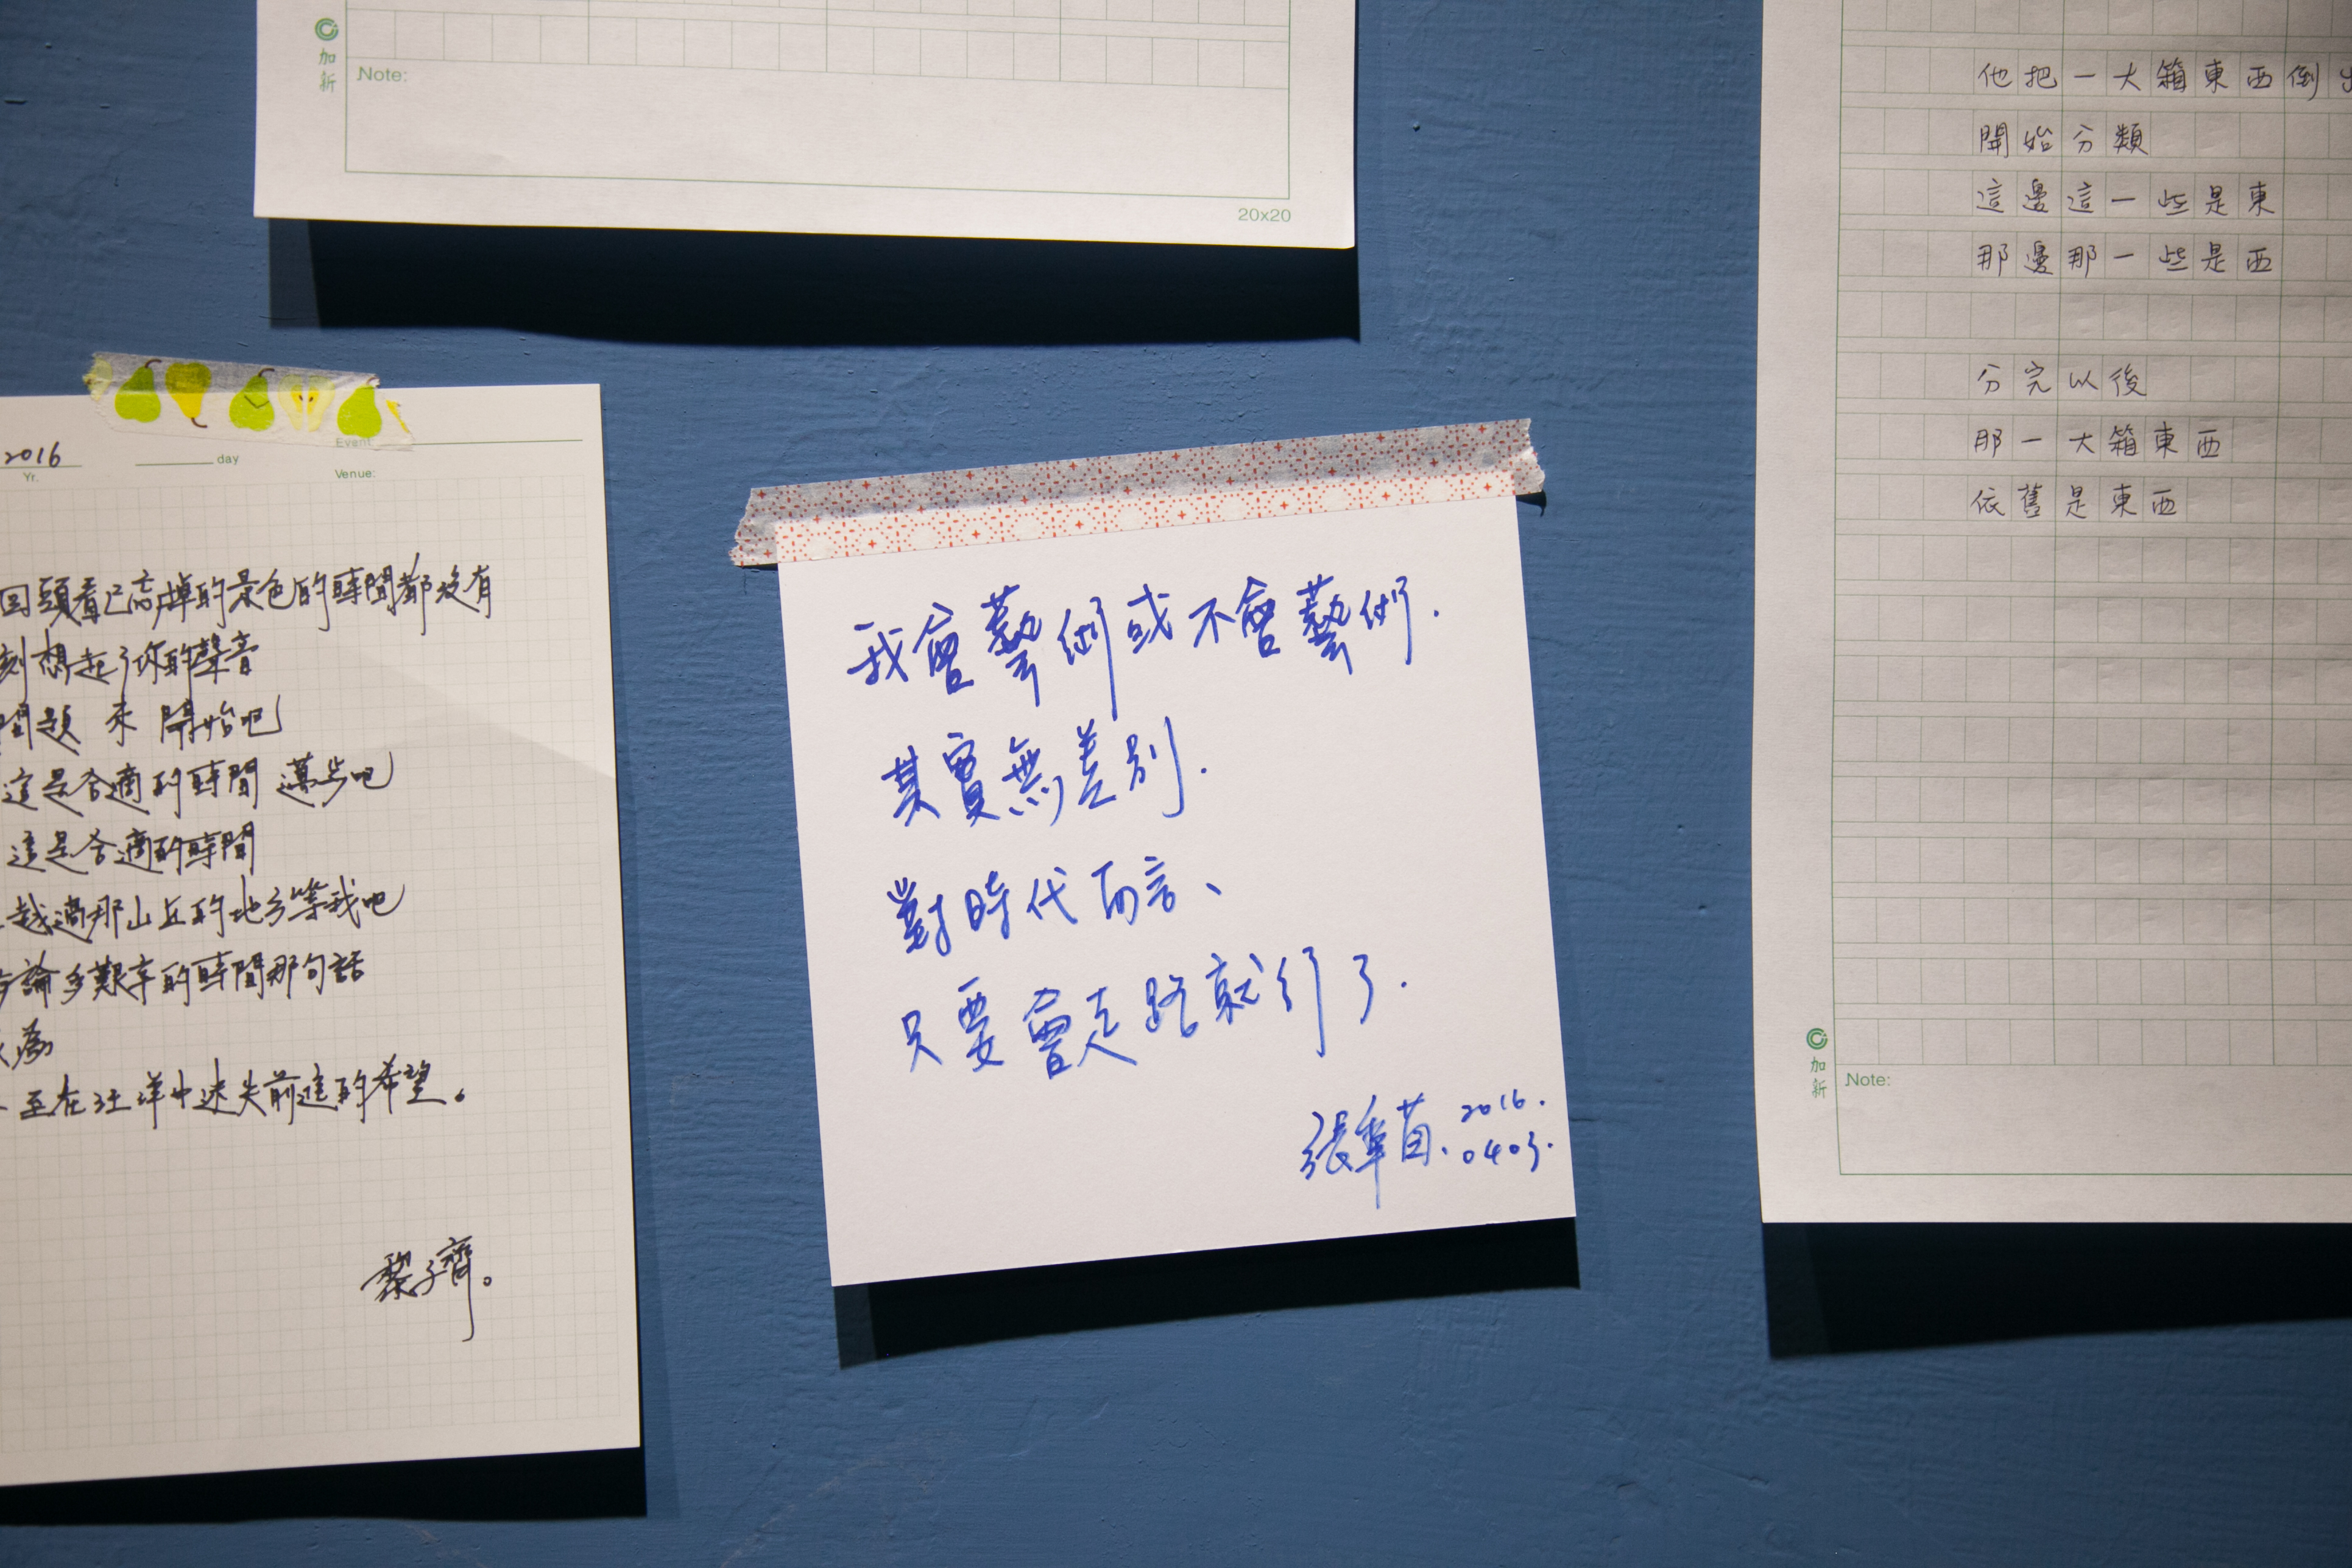 加新
Note:
20x20
2016
Yr.
day
Event:
Venue:
回頭看已高掉的景色的時間都沒有
刻想起了你的聲音
問題 來 開始吧
這是合適的時間 邁步吧
這是合適的時間
越過那山丘的地方等我吧
論多艱辛的時間那句話
為
至在汪洋中迷失前進的希望。
黎子齊。
我會藝術或不會藝術.
其實無差別.
對時代而言、
只要會走路就行了.
張聿苗. 2016.
0403.
他把一大箱東西倒
開始分類
這邊這一些是東
那邊那一些是西
分完以後
那一大箱東西
依舊是東西
加新
Note: